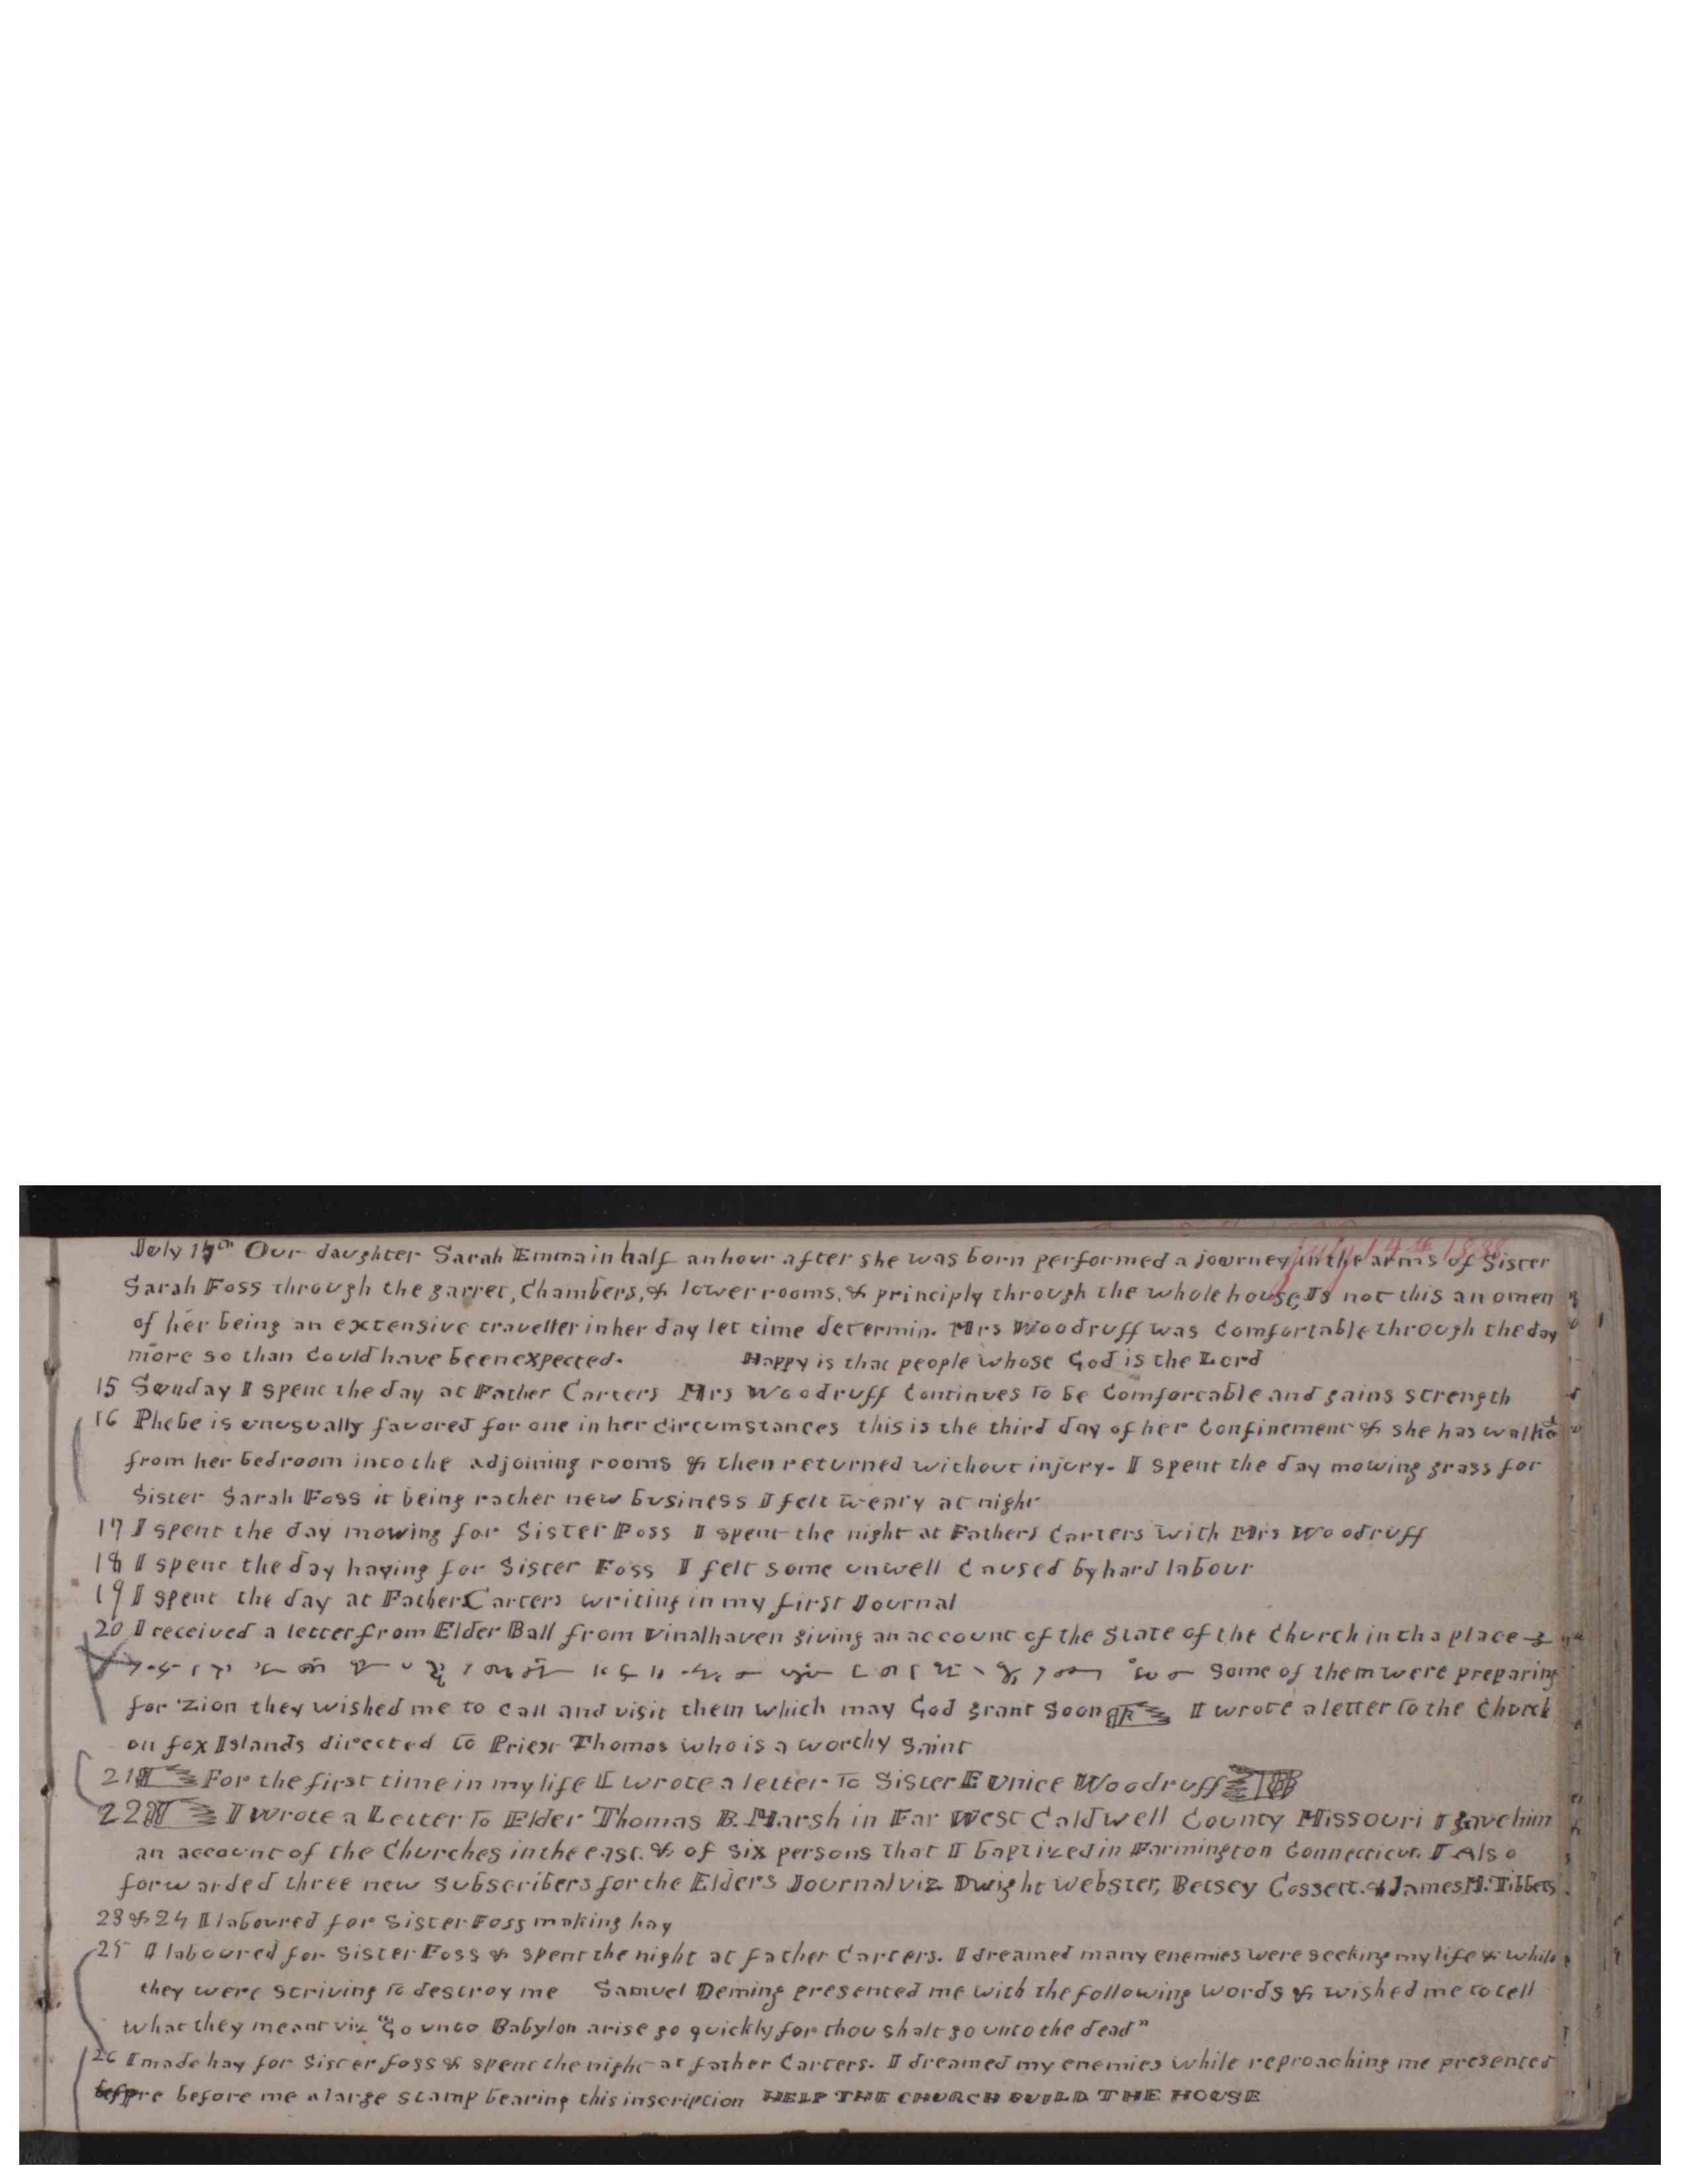 July 14th 1838
July 14th Our daughter Sarah Emma in half an hour after she was born performed a journey in the arms of Sister
Sarah Foss through the garret, Chambers, & lower rooms, & principly through the whole house, Is not this an omen
of her being an extensive traveller in her day let time determin. Mrs Woodruff was Comfortable through the day
more so than Could have been expected. Happy is that people whose God is the Lord
15 Sunday I spent the day at Father Carters Mrs Woodruff Continues to be Comfortable and gains strength
16 Phebe is unusually favored for one in her circumstances this is the third day of her Confinement & she has walked
from her bedroom into the adjoining rooms & then returned without injury. I spent the day mowing grass for
Sister Sarah Foss it being rather new business I felt weary at night
17 I spent the day mowing for Sister Foss I spent the night at Fathers Carters with Mrs Woodruff
18 I spent the day haying for Sister Foss I felt some unwell Caused by hard labour
19 I spent the day at Father Carters writing in my first Journal
20 I received a letter from Elder Ball from Vinalhaven giving an account of the State of the Church in tha place
Some of them were preparing
for Zion they wished me to call and visit them which may God grant Soon I wrote a letter to the Church
on fox Islands directed to Priest Thomas who is a worthy Saint
21 For the first time in my life I wrote a letter to Sister Eunice Woodruff
22 I Wrote a Letter To Elder Thomas B. Marsh in Far West Caldwell County Missouri I gave him
an account of the Churches in the east. & of six persons that I baptized in Farmington Connecticut. I Also
forwarded three new Subscribers for the Elders Journal viz Dwight Webster, Betsey Cossett. & James M. Tibbets
23 & 24 I laboured for Sister Foss making hay
25 I laboured for Sister Foss & spent the night at father Carters. I dreamed many enemies were seeking my life & while
they were striving to destroy me Samuel Deming presented me with the following words & wished me to tell
what they meant viz "Go unto Babylon arise go quickly for thou shalt go unto the dead"
26 I made hay for Sister foss & spent the night at father Carters. I dreamed my enemies while reproaching me presented
before me a large stamp bearing this inscription HELP THE CHURCH BUILD THE HOUSE